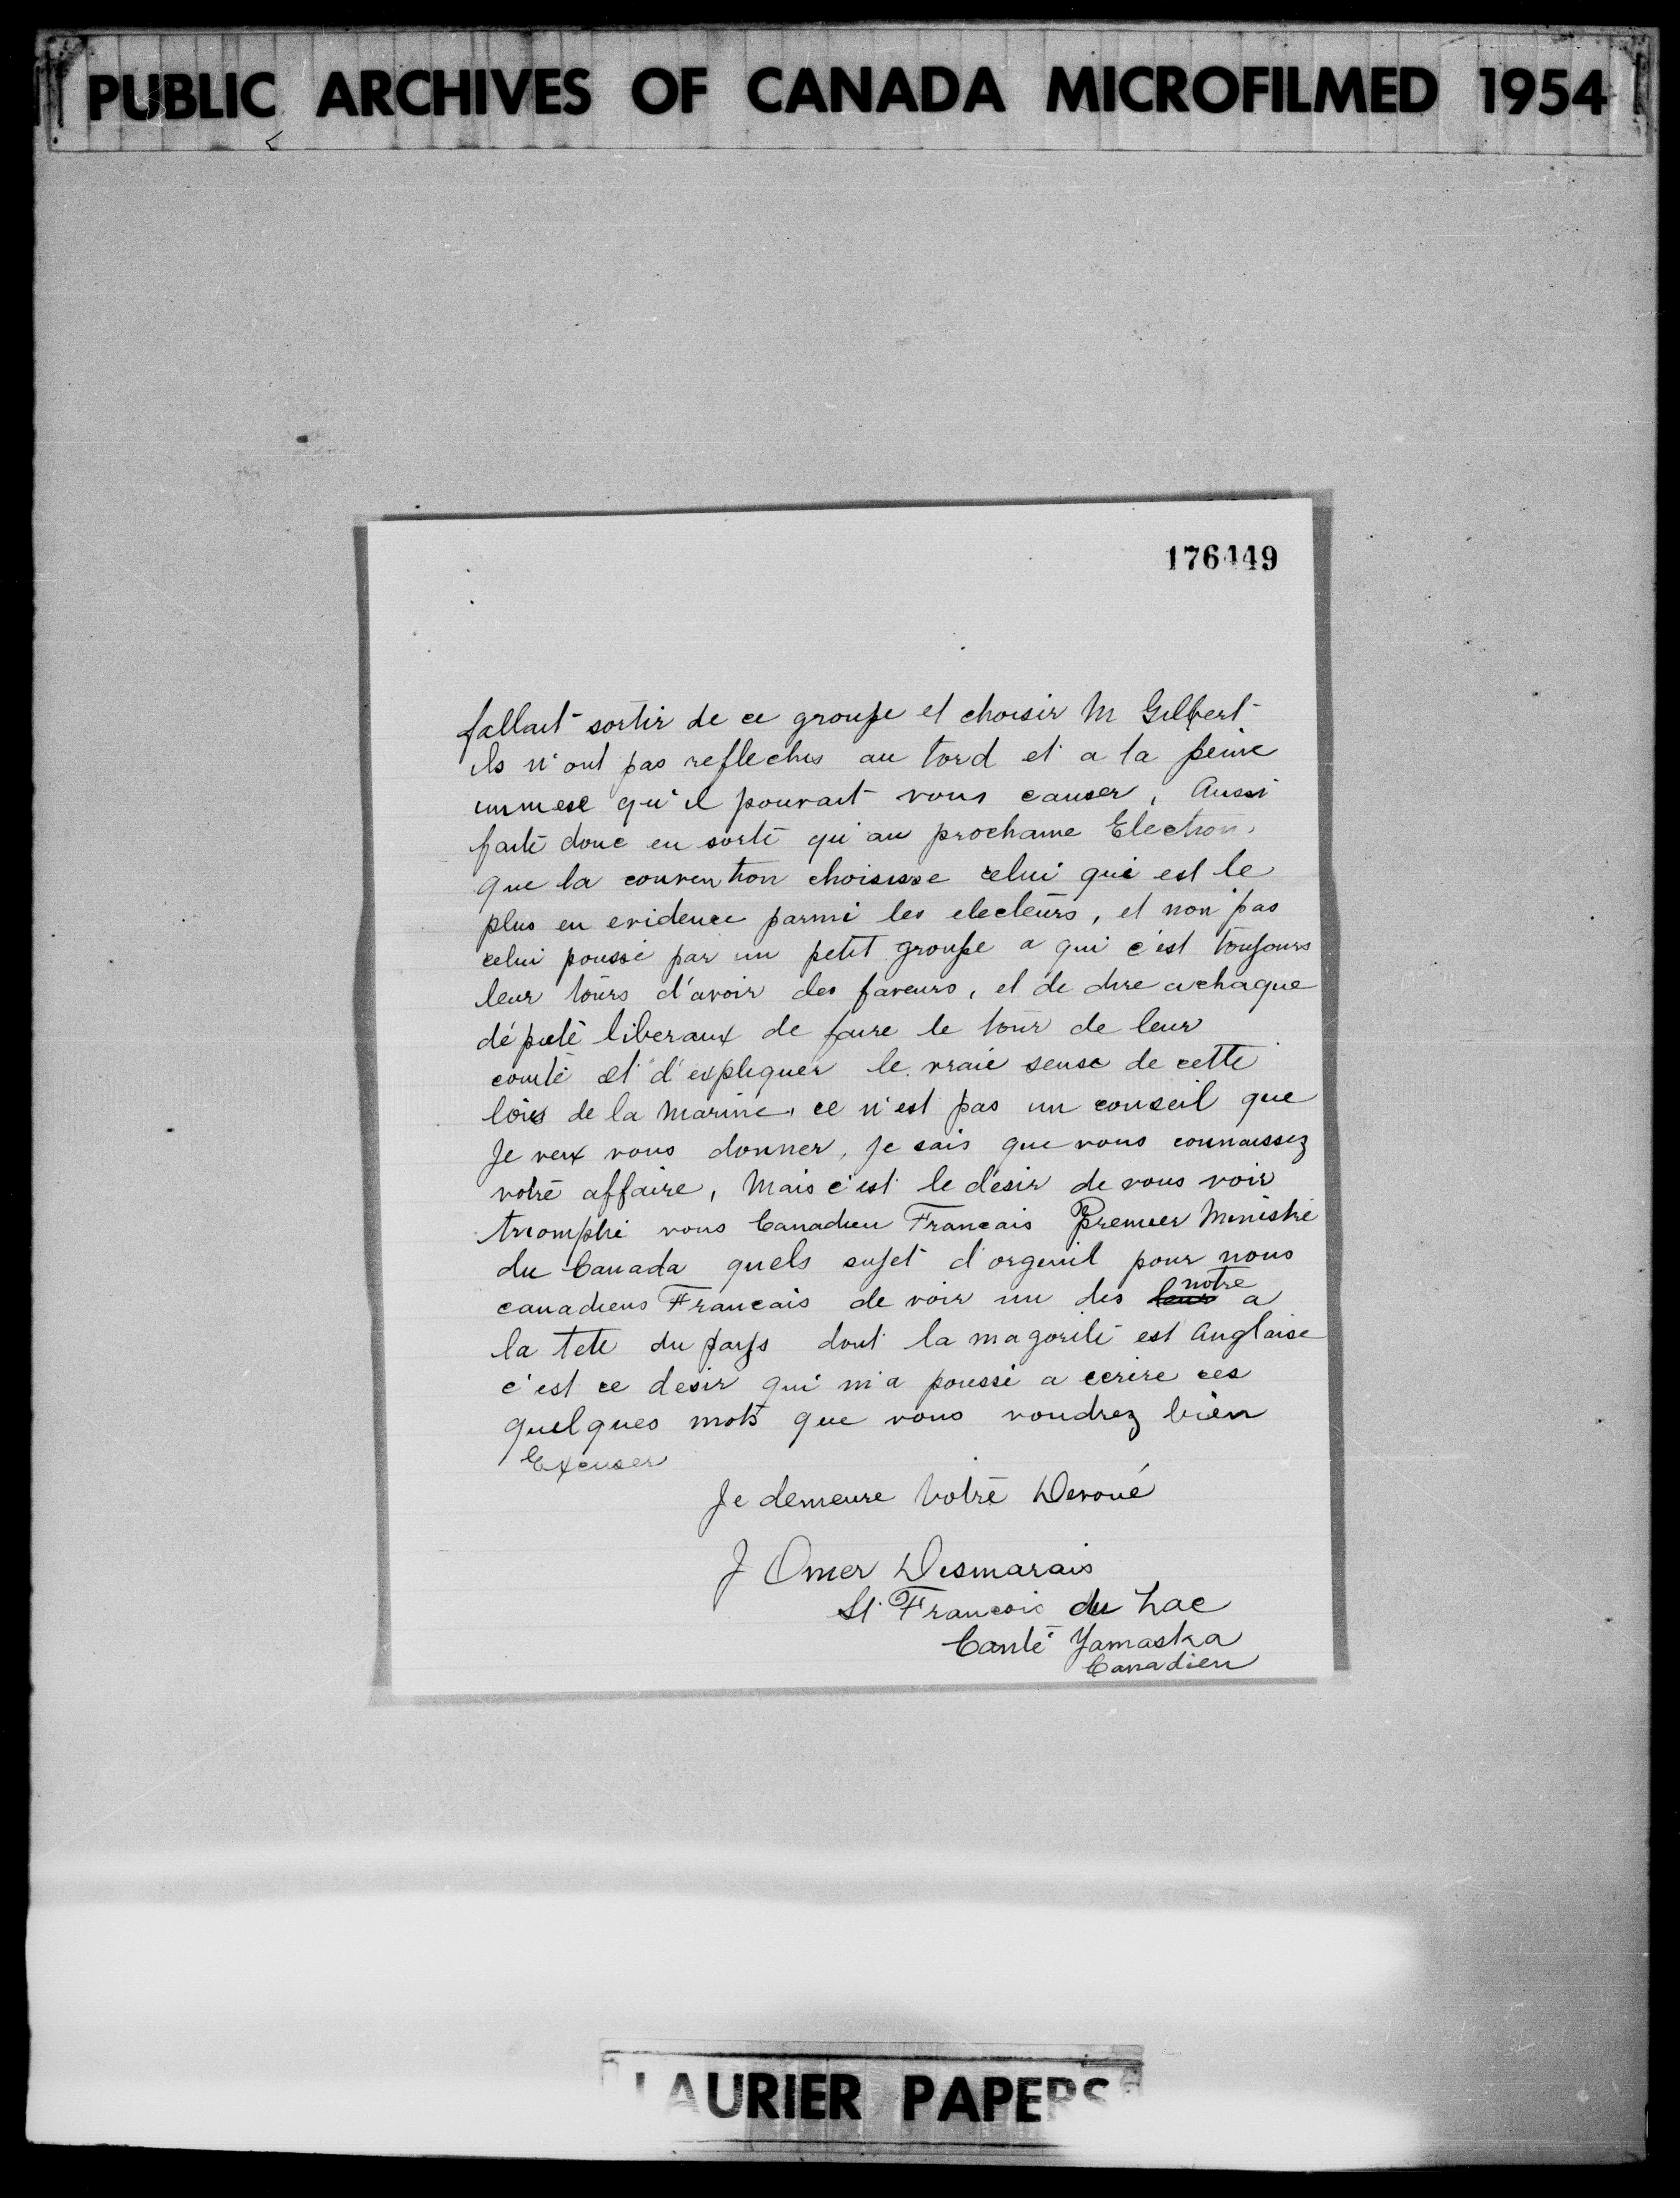 PUBLIC ARCHIVES OF CANADA MICROFILMED 1954
176449
fallait sortir de ce groupe et choisir M Gilbert
ils n'ont pas reflechis au tord et a la peine
immese qu'il pouvait vous causer, Aussi
faite donc en sorte qu'au prochaine Election,
que la convention choisisse celui qui est le
plus en evidence parmi les electeurs, et non pas
celui poussé par un petit groupe a qui c'est toujours
leur tours d'avoir des faveurs, et de dire a chaque
député liberaux de faire le tour de leur
comté et d'expliquer le vraie sense de cette
lois de la Marine, ce n'est pas un conseil que
Je veux vous donner, je sais que vous connaissez
votre affaire, Mais c'est le desir de vous voir
triomphé vous Canadien Francais Premier Ministre
du Canada quels sujet d'orgeuil pour nous
canadiens Francais de voir un des leur notre a
la tete du pays dont la magorité est Anglaise
c'est ce desir qui m'a poussé a ecrire ces
quelques mots que vous voudrez bien
Excuser
Je demeure Votre Devoué
J Omer Desmarais
St Francois du Lac
Canté Yamaska
Canadien
LAURIER PAPERS